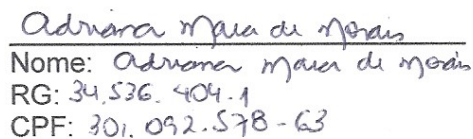 Adriana Maia de Morais
Nome: Adriana Maia de Morais
RG: 34.536.404-1
CPF: 301.092.578-63